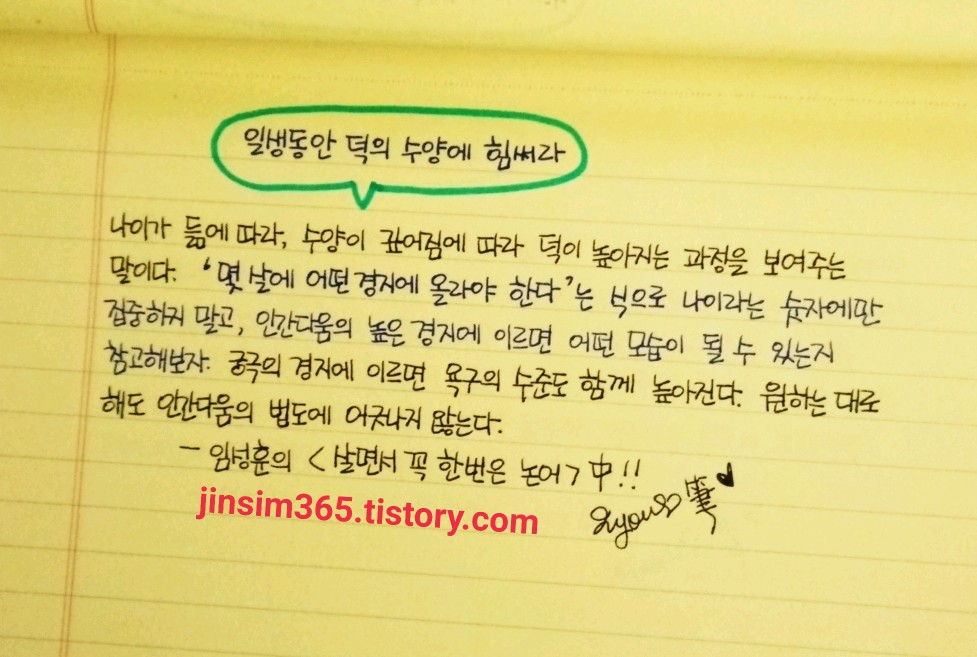 일생동안 덕의 수양에 힘써라
나이가 듦에 따라, 수양이 깊어짐에 따라 덕이 높아지는 과정을 보여주는
말이다. ‘몇 살에 어떤 경지에 올라야 한다’는 식으로 나이라는 숫자에만
집중하지 말고, 인간다움의 높은 경지에 이르면 어떤 모습이 될 수 있는지
참고해보자. 궁극의 경지에 이르면 욕구의 수준도 함께 높아진다. 원하는 대로
해도 인간다움의 법도에 어긋나지 않는다.
- 임성훈의 <살면서 꼭 한번은 논어> 中!!
jinsim365.tistory.com
筆